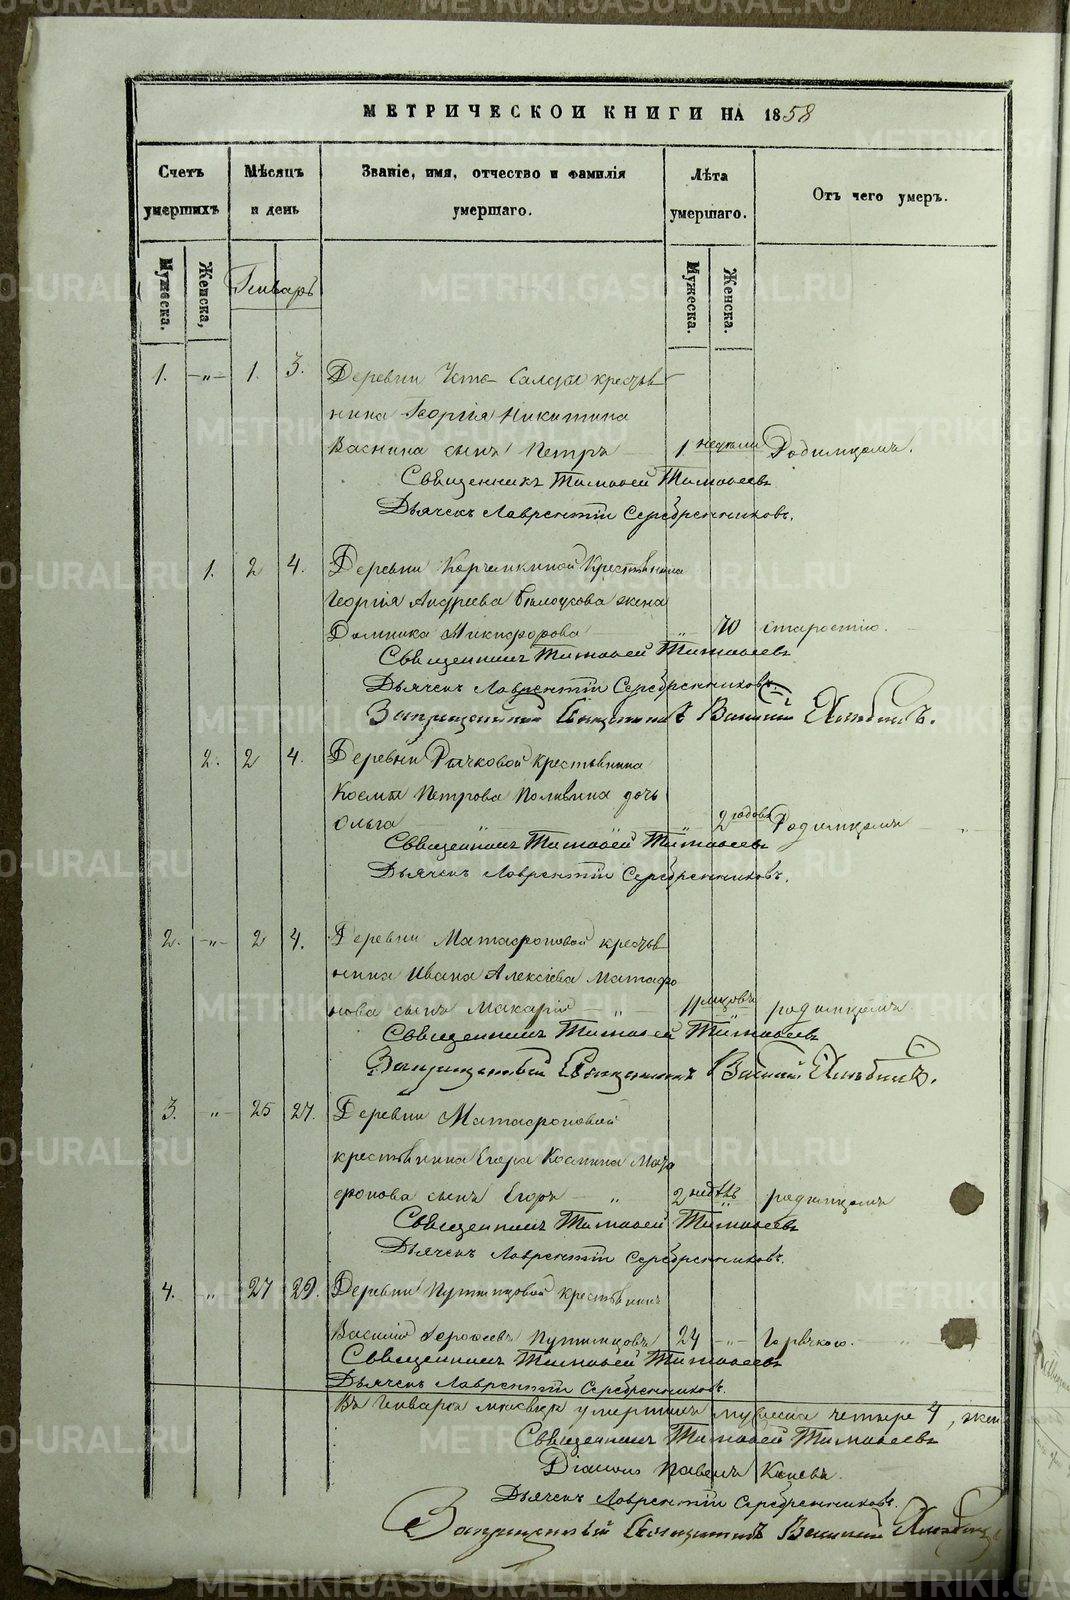 МЕТРИЧЕСКОЙ КНИГИ НА 1858
Счетъ умершихъ
Мѣсяцъ и день
Званіе, имя, отчество и фамилія умершаго.
Лѣта умершаго.
Отъ чего умеръ.
Мужеска.
Женска,
Генварь
Мужеска.
Женска.
1. -„- 1. 3. Деревни Усто-Салды крестья
нина Георгія Никитина
Васнина сынъ Петръ 1 недѣли Родимцомъ.
Священникъ Тимофей Тимофеевъ
Дьячекъ Лаврентій Серебренниковъ.
1. 2 4. Деревни Корчемкиной Крестьянина
Георгія Андреева жена
Домника Никифорова „ 70 старостію.
Священникъ Тимофей Тимофеевъ
Дьячекъ Лаврентій Серебренниковъ.
Запрещенный Священникъ Василій
2. 2 4. Деревни Рычковой крестьянина
Космы Петрова дочь
Ольга „ „ „ 2 годовъ Родимцомъ „
Священникъ Тимофей Тимофеевъ
Дьячекъ Лаврентій Серебренниковъ.
2. -„- 2 4. Деревни Матафоновой крестья
нина Ивана Алексѣева Матафо
нова сынъ Макарій „ родимцомъ
Священникъ Тимофей Тимофеевъ
Запрещенный Священникъ Василій
3. „ 25 27. Деревни Матафоновой
крестьянина Егора Космина Мата
фонова сынъ Егоръ „ 2 недѣль родимцомъ
Священникъ Тимофей Тимофеевъ
Дьячекъ Лаврентій Серебренниковъ.
4. „ 27 29. Деревни Путимцовой крестьянинъ
Василій Дорофеевъ Путимцовъ 24 -„- Горячкою. „
Священникъ Тимофей Тимофеевъ
Дьячекъ Лаврентій Серебренниковъ.
Въ Генварѣ мѣсяцѣ умершихъ мужеска четыре 4, жен
Священникъ Тимофей Тимофеевъ
Діаконъ Павелъ
Дьячекъ Лаврентій Серебренниковъ.
Запрещенный Священникъ Василій
METRIKI.GASO-URAL.RU